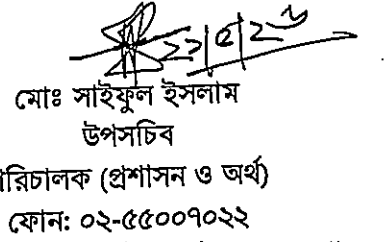 মোঃ সাইফুল ইসলাম
উপসচিব
পরিচালক (প্রশাসন ও অর্থ)
ফোন: ০২-৫৫০০৭০২২